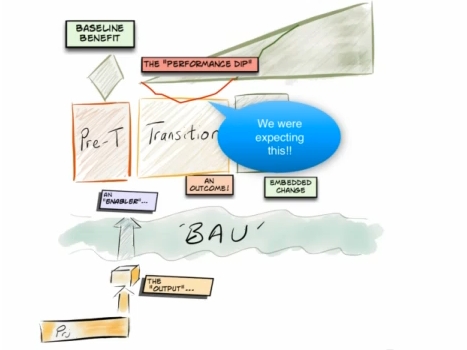 BASELINE
BENEFIT
THE "PERFORMANCE DIP"
Pre-T
Transition
We were
expecting
this!!
AN
OUTCOME!
EMBEDDED
CHANGE
AN
"ENABLER"...
'BAU'
THE
"OUTPUT"...